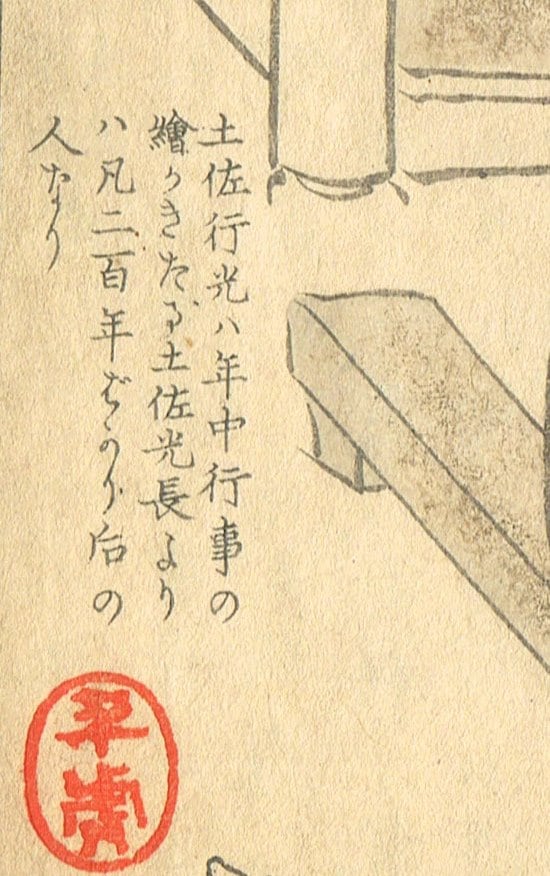 土佐行光ハ年中行事の
繪かきたる土佐光長より
ハ凡二百年ばかり后の
人なり